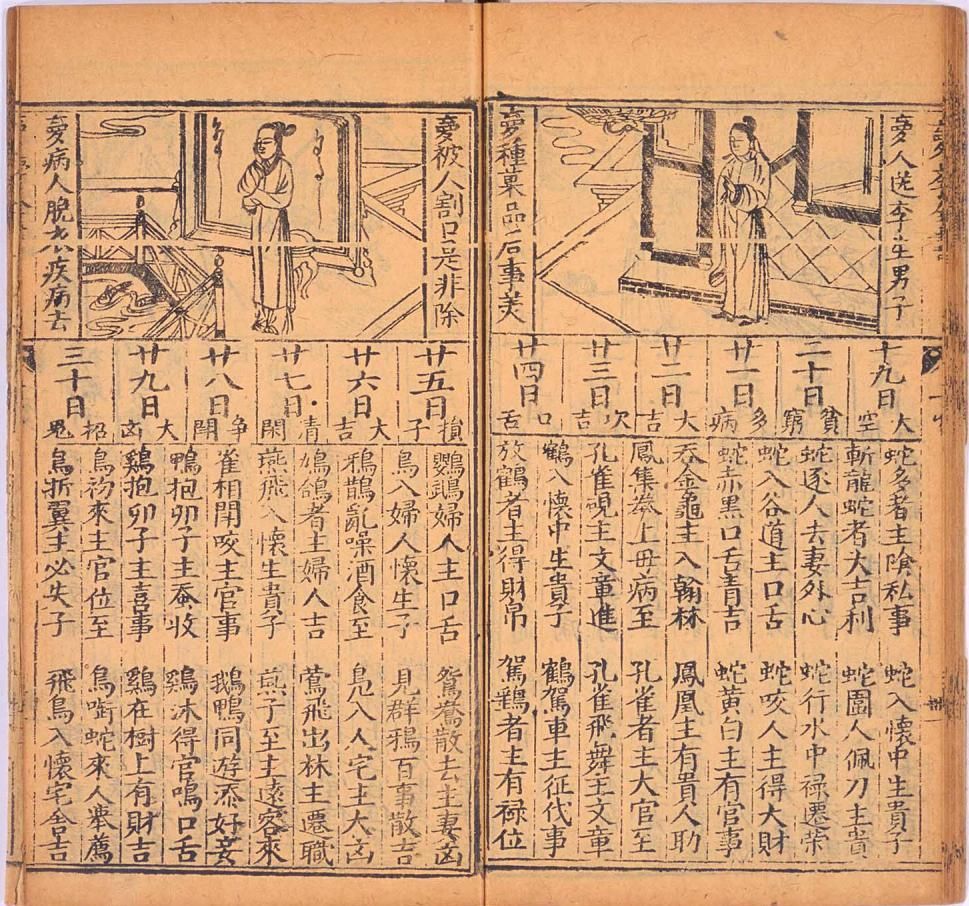 夣人送李生男子
夣種菓品后事美
十九日
大空
二十日
貧窮
廿一日
多病
廿二日
大吉
廿三日
次吉
廿四日
口舌
蛇多者主隂私事
蛇入懷中生貴子
斬龍蛇者大吉利
蛇圍人佩刀主貴
蛇逐人去妻外心
蛇行水中禄遷荣
蛇入谷道主口舌
蛇咬人主得大財
蛇赤黑口舌青吉
蛇黄白主有官事
吞金龜主入翰林
鳳凰主有貴人助
鳳集拳上毋病至
孔雀者主大官至
孔雀視主文章進
孔雀飛舞主文章
鶴入懷中生貴子
鶴駕車主征代事
放鶴者主得財帛
駕鶴者主有禄位
夣被人割口是非除
夣病人脫衣疾病去
廿五日
損子
廿六日
大吉
廿七日
清閑
廿八日
争閗
廿九日
大凶
三十日
招鬼
鸚鵡婦人主口舌
鴛鴦散去主妻凶
鳥入婦人懷生子
見群鴉百事散吉
鴉鵲亂噪酒食至
鳧入人宅主大凶
鳩鴿者主婦人吉
鶯飛出林主遷職
燕飛入懷生貴子
燕子至主遠客來
雀相閗咬主官事
鵝鴨同遊添好妾
鴨抱卵子主蚕收
鷄沐得官鳴口舌
鷄抱卵子主喜事
鷄在樹上有財吉
鳥初來主官位至
鳥啣蛇來人舉薦
鳥折翼主必失子
飛鳥入懷宅舍吉